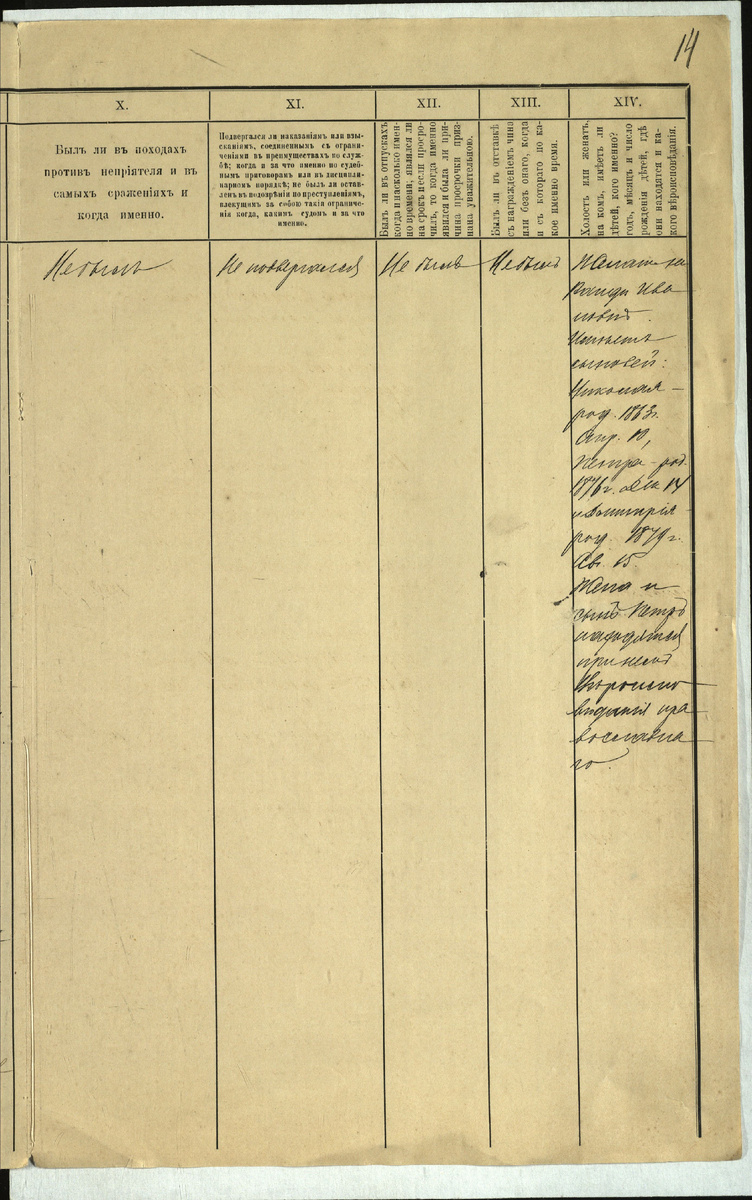 14
X.
XI.
XII.
XIII.
XIV.
Былъ ли въ походахъ
противъ непріятеля и въ
самыхъ сраженіяхъ и
когда именно.
Подвергался ли наказаніямъ или взы-
сканіямъ, соединеннымъ съ ограни-
ченіями въ преимуществахъ по служ-
бѣ; когда и за что именно по судеб-
нымъ приговорамъ или въ дисципли-
нарномъ порядкѣ; не былъ ли остав-
ленъ въ подозрѣніи по преступленіямъ,
влекущимъ за собою такія ограниче-
нія когда, какимъ судомъ и за что
именно.
Былъ ли въ отпускахъ
когда и насколько имен-
но времени, явился ли
на срокъ и если просро-
чилъ, то когда именно
явился и была ли при-
чина просрочки приз-
нана уважительною.
Былъ ли въ отставкѣ
съ награжденіемъ чина
или безъ онаго, когда
и съ котораго по ка-
кое именно время.
Холостъ или женатъ,
на комъ, имѣетъ ли
дѣтей, кого именно?
годъ, мѣсяцъ и число
рожденія дѣтей, гдѣ
они находятся и ка-
кого вѣроисповѣданія.
Не былъ
Не подвергался
Не былъ
Не былъ
Женатъ на
Ива
новой.
Имѣетъ
сыновей:
Николая –
род. 1863г.
Апр. 10,
Петра – род.
1876г. 14
и Димитрія –
род. 1879 г.
15.
Жена и
сынъ Петръ
находятся
при немъ
Вѣроиспо
вѣданія пра
вославна
го.